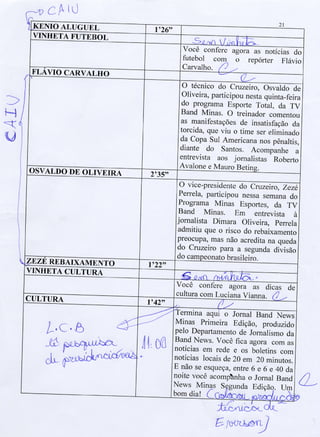 CAIU
21
KENIO ALUGUEL 1'26"
VINHETA FUTEBOL Sem Vinheta
Você confere agora as notícias do
futebol com o repórter Flávio
Carvalho.
FLÁVIO CARVALHO
O técnico do Cruzeiro, Osvaldo de
Oliveira, participou nesta quinta-feira
do programa Esporte Total, da TV
Band Minas. O treinador comentou
as manifestações de insatisfação da
torcida, que viu o time ser eliminado
da Copa Sul Americana nos pênaltis,
diante do Santos. Acompanhe a
entrevista aos jornalistas Roberto
Avalone e Mauro Beting.
CAIU
OSVALDO DE OLIVEIRA 2'35"
O vice-presidente do Cruzeiro, Zezé
Perrela, participou nessa semana do
Programa Minas Esportes, da TV
Band Minas. Em entrevista à
jornalista Dimara Oliveira, Perrela
admitiu que o risco do rebaixamento
preocupa, mas não acredita na queda
do Cruzeiro para a segunda divisão
do campeonato brasileiro.
ZEZÉ REBAIXAMENTO 1'22"
VINHETA CULTURA Sem vinheta.
Você confere agora as dicas de
cultura com Luciana Vianna.
CULTURA 1'42"
Termina aqui o Jornal Band News
Minas Primeira Edição, produzido
pelo Departamento de Jornalismo da
Band News. Você fica agora com as
notícias em rede e os boletins com
notícias locais de 20 em 20 minutos.
E não se esqueça, entre 6 e 6 e 40 da
noite você acompanha o Jornal Band
News Minas Segunda Edição. Um
bom dia! (Colocou produção
técnica de
Everson)
L.C.B
tê pesquisa
de presidenciáveis.